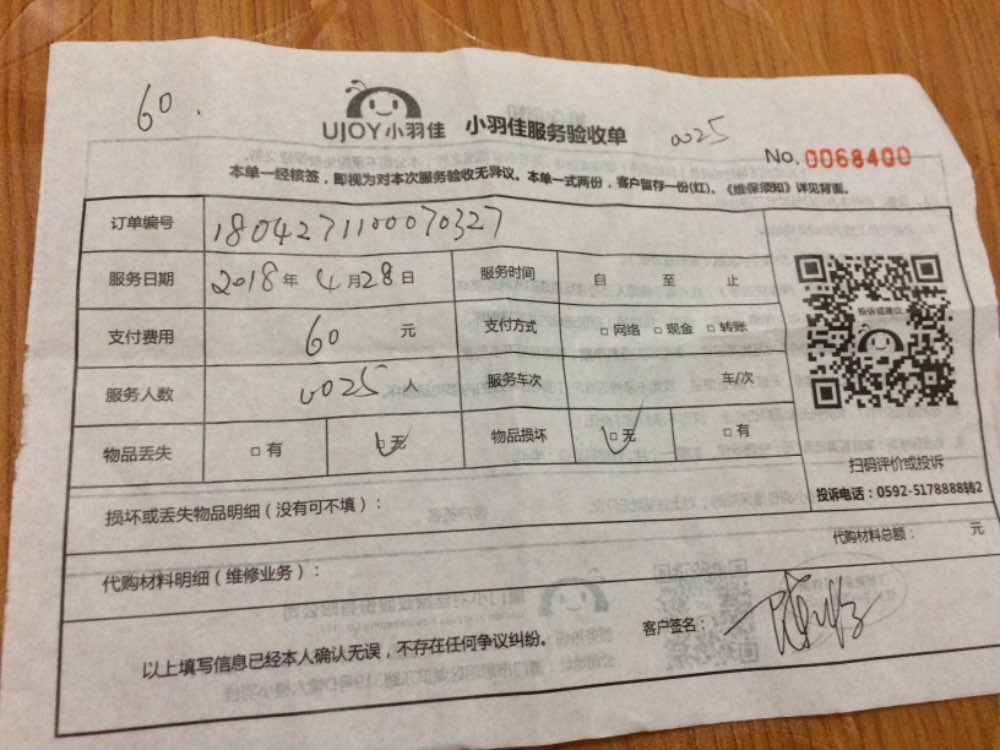 60.
UJOY小羽佳 小羽佳服务验收单 0025
No. 0068400
本单一经核签，即视为对本次服务验收无异议。本单一式两份，客户留存一份(红)。《维保须知》详见背面。
订单编号 1804271100070327
服务日期 2018年4月28日 服务时间 自 至 止
支付费用 60 元 支付方式 □网络 □现金 □转账
服务人数 0025 人 服务车次 车/次
物品丢失 □有 □无 物品损坏 □无 □有
投诉或建议
扫码评价或投诉
投诉电话：0592-5178888转2
损坏或丢失物品明细（没有可不填）：
代购材料总额： 元
代购材料明细（维修业务）：
客户签名：
以上填写信息已经本人确认无误，不存在任何争议纠纷。